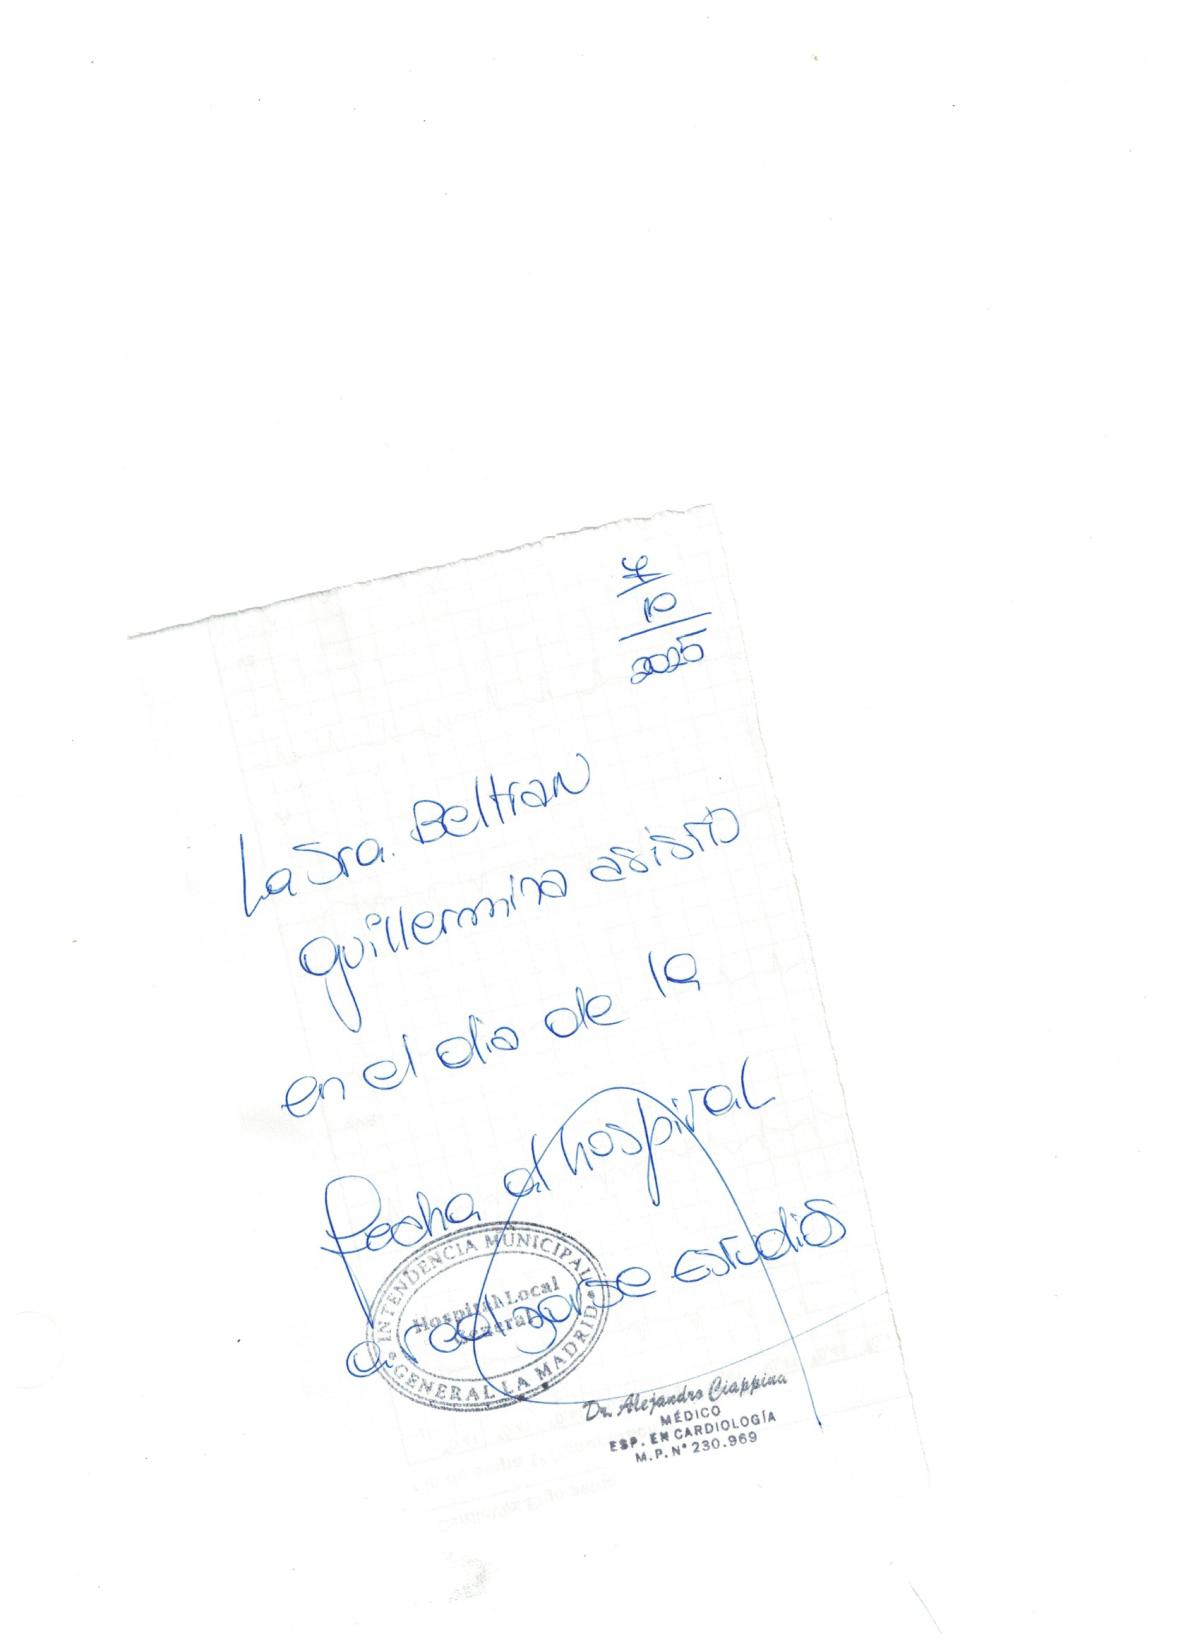 7
10
2025
La Sra. Beltran
Guillermina asistió
en el dia de la
fecha al hospital
a realizarse estudios
INTENDENCIA MUNICIPAL
Hospital Local
General
GENERAL LA MADRID
Dr. Alejandro Ciappina
MÉDICO
ESP. EN CARDIOLOGÍA
M.P. N° 230.969